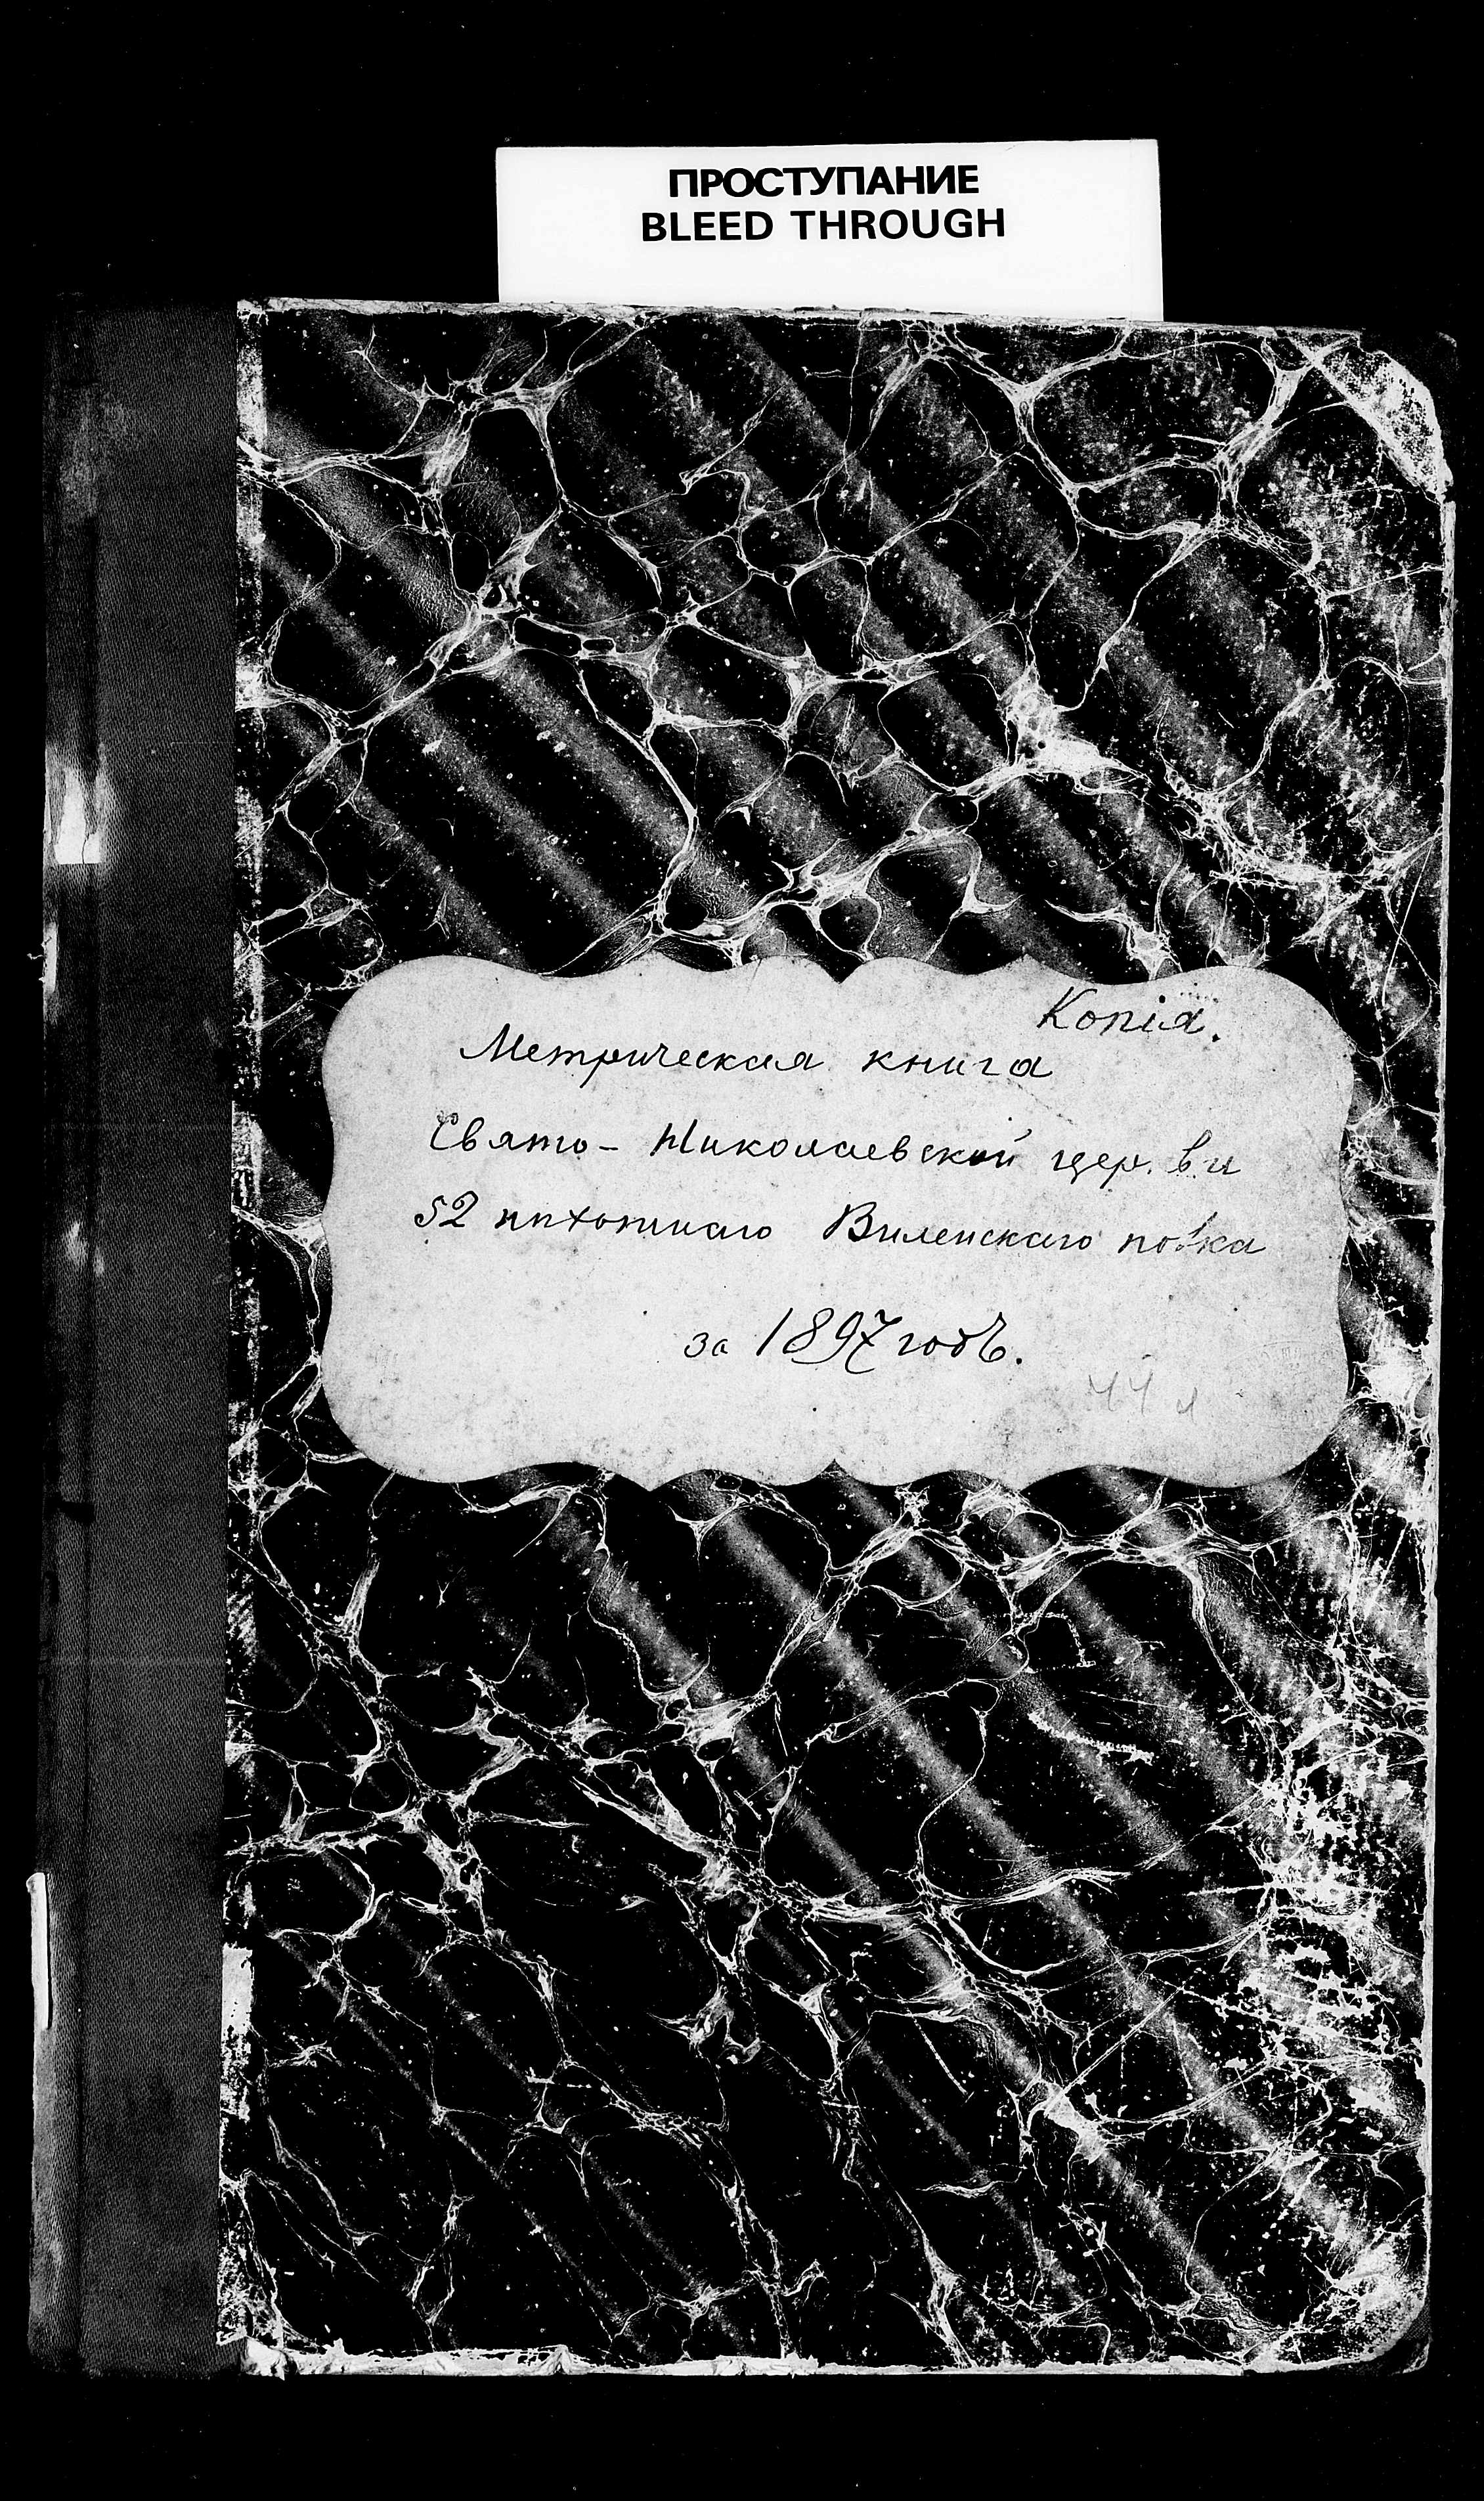 ПРОСТУПАНИЕ
BLEED THROUGH
Копія.
Метрическая книга
Свято-Николаевской церкви
52 пѣхотнаго Виленскаго полка
за 1897 годъ.
44 л